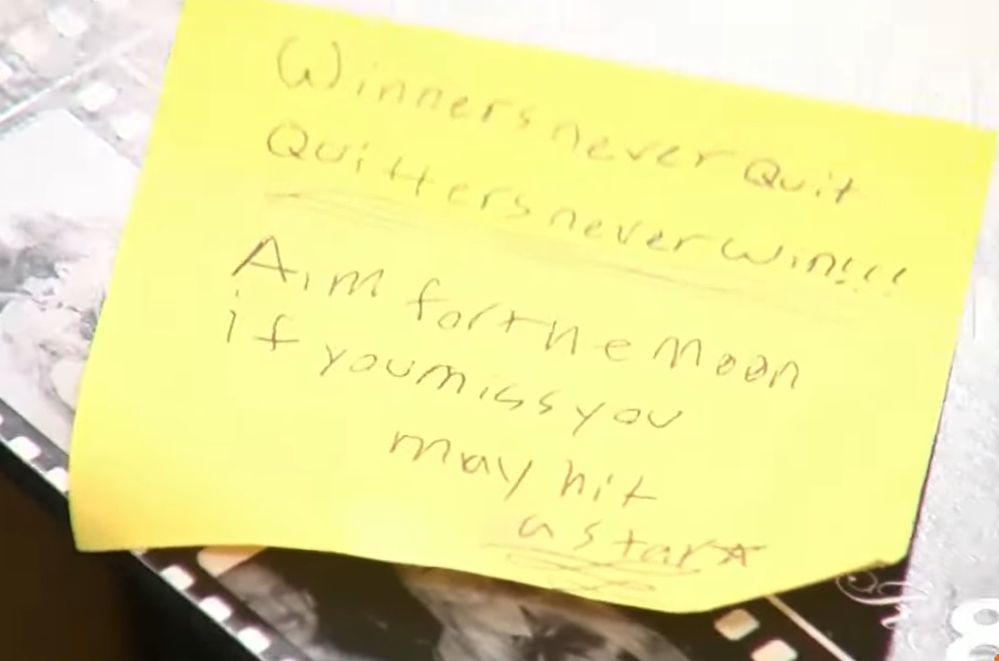 Winners never Quit
Quitters never win!!!
Aim for the Moon
if you miss you
may hit
a star☆
8